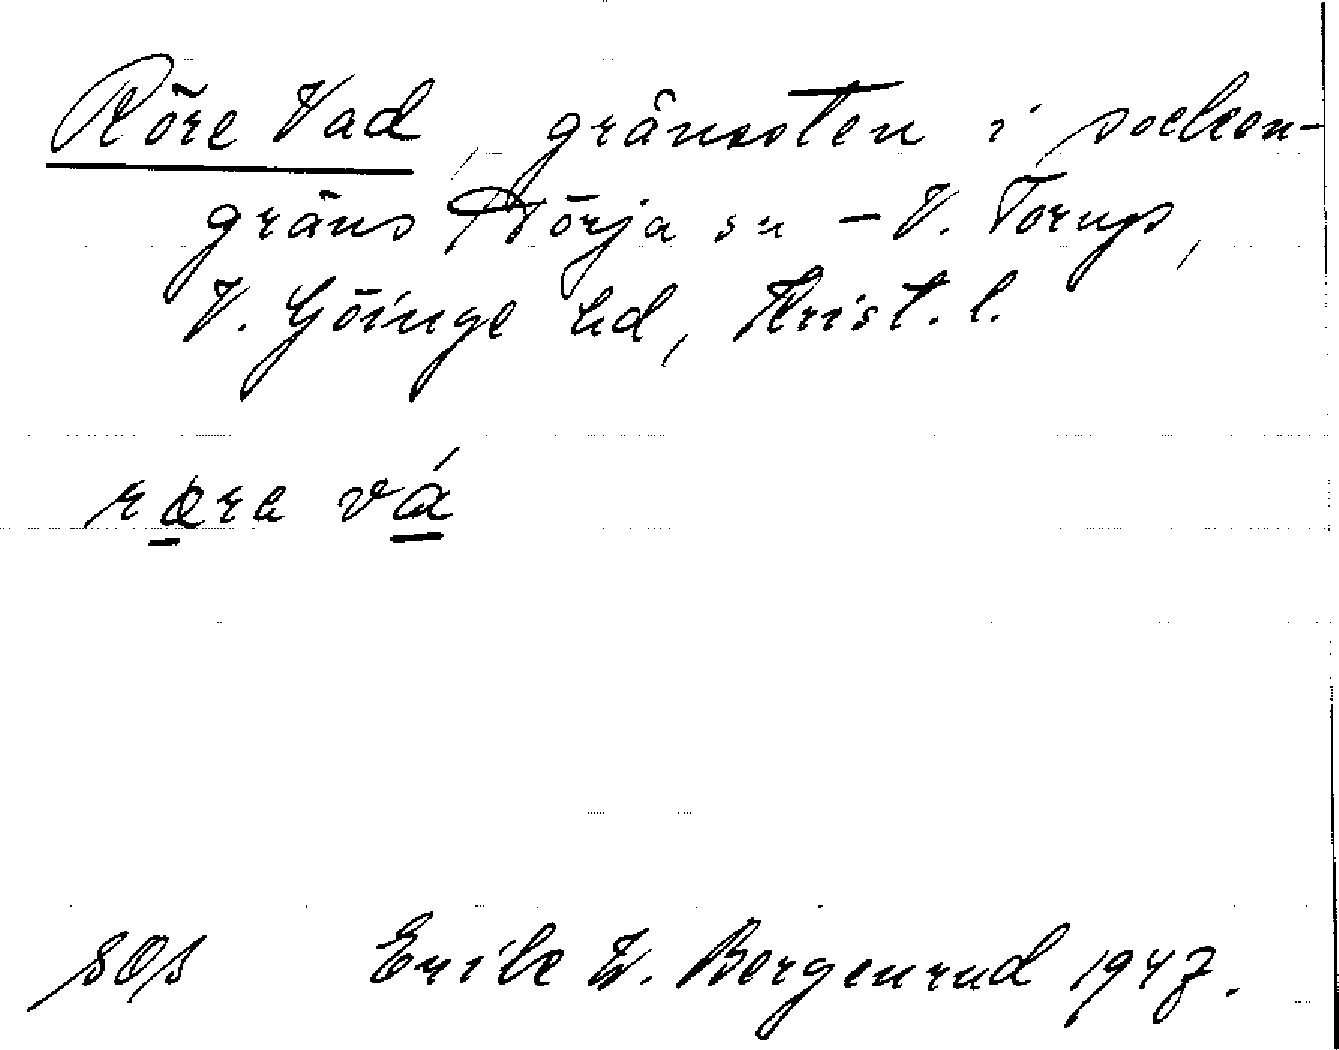 Röre Vad, gränssten i socken-
gräns Rörja sn – V. Torups,
V. Göinge hd, Krist. l.
røra vá
Erik W. Bergenrud 1947.